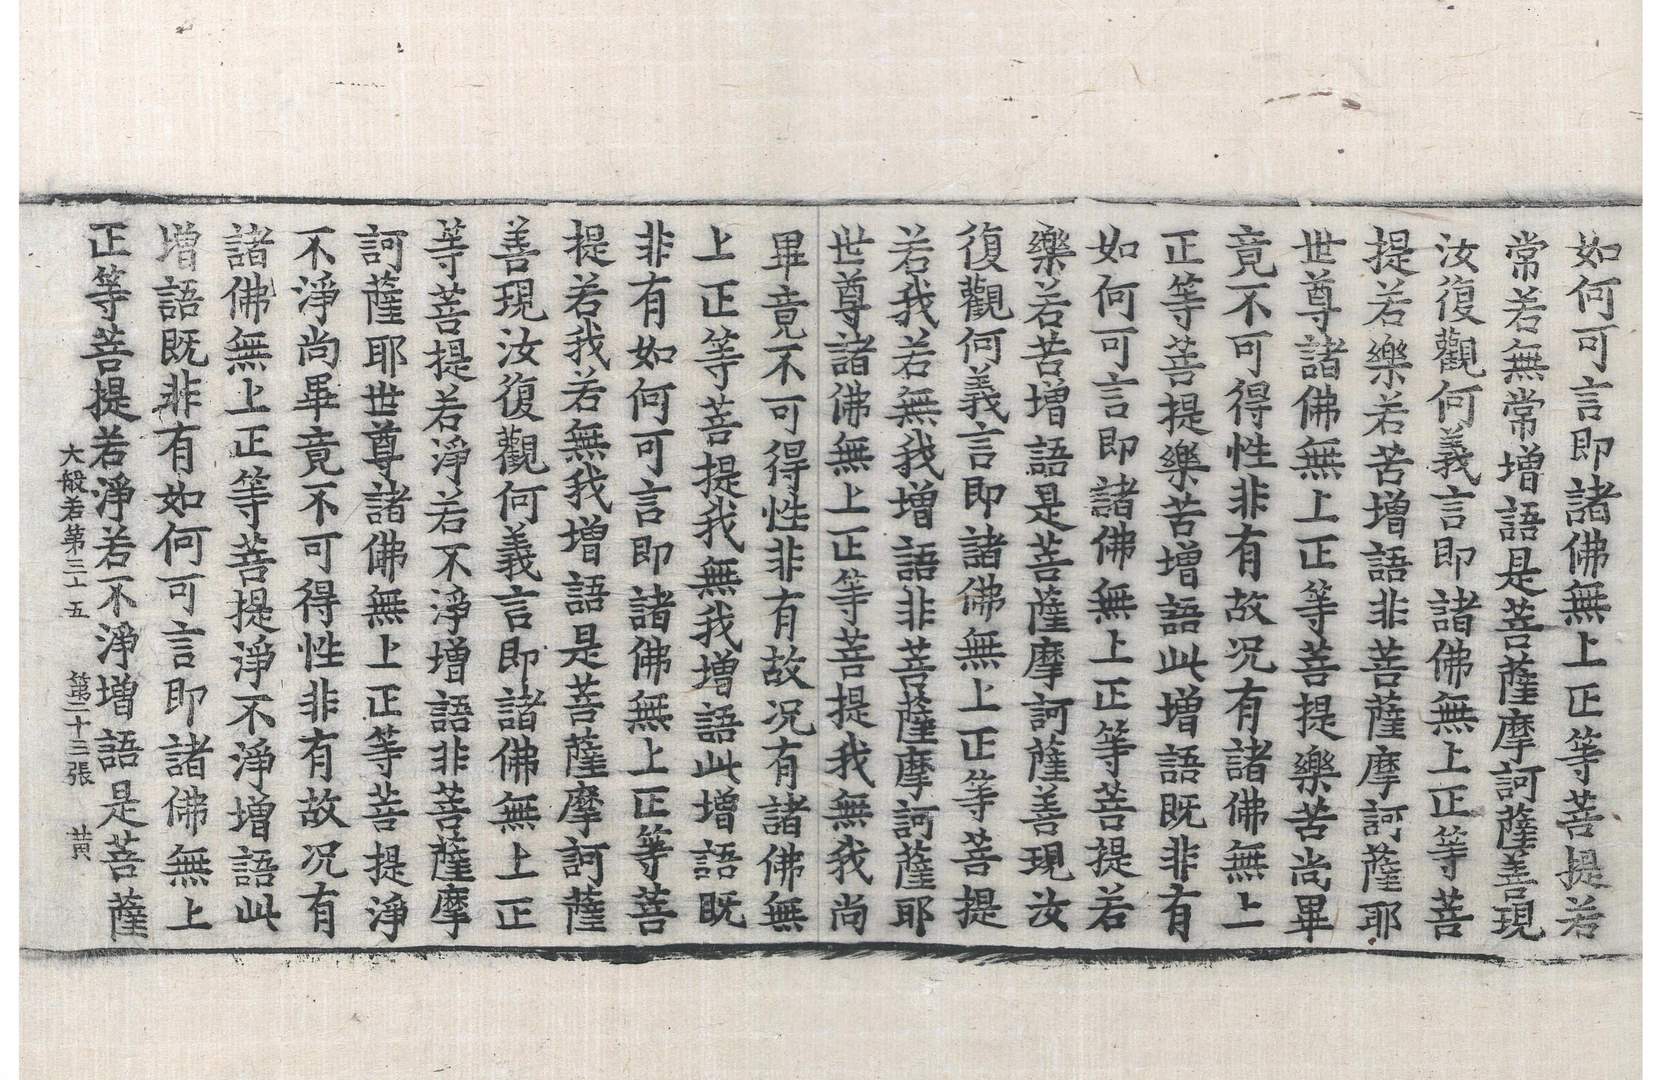 如何可言即諸佛無上正等菩提若
常若無常增語是菩薩摩訶薩善現
汝復觀何義言即諸佛無上正等菩
提若樂若苦增語非菩薩摩訶薩耶
世尊諸佛無上正等菩提樂苦尚畢
竟不可得性非有故况有諸佛無上
正等菩提樂苦增語此增語既非有
如何可言即諸佛無上正等菩提若
樂若苦增語是菩薩摩訶薩善現汝
復觀何義言即諸佛無上正等菩提
若我若無我增語非菩薩摩訶薩耶
世尊諸佛無上正等菩提我無我尚
畢竟不可得性非有故况有諸佛無
上正等菩提我無我增語此增語既
非有如何可言即諸佛無上正等菩
提若我若無我增語是菩薩摩訶薩
善現汝復觀何義言即諸佛無上正
等菩提若淨若不淨增語非菩薩摩
訶薩耶世尊諸佛無上正等菩提淨
不淨尚畢竟不可得性非有故况有
諸佛無上正等菩提淨不淨增語此
增語既非有如何可言即諸佛無上
正等菩提若淨若不淨增語是菩薩
大般若第三十五 第二十三張 黄